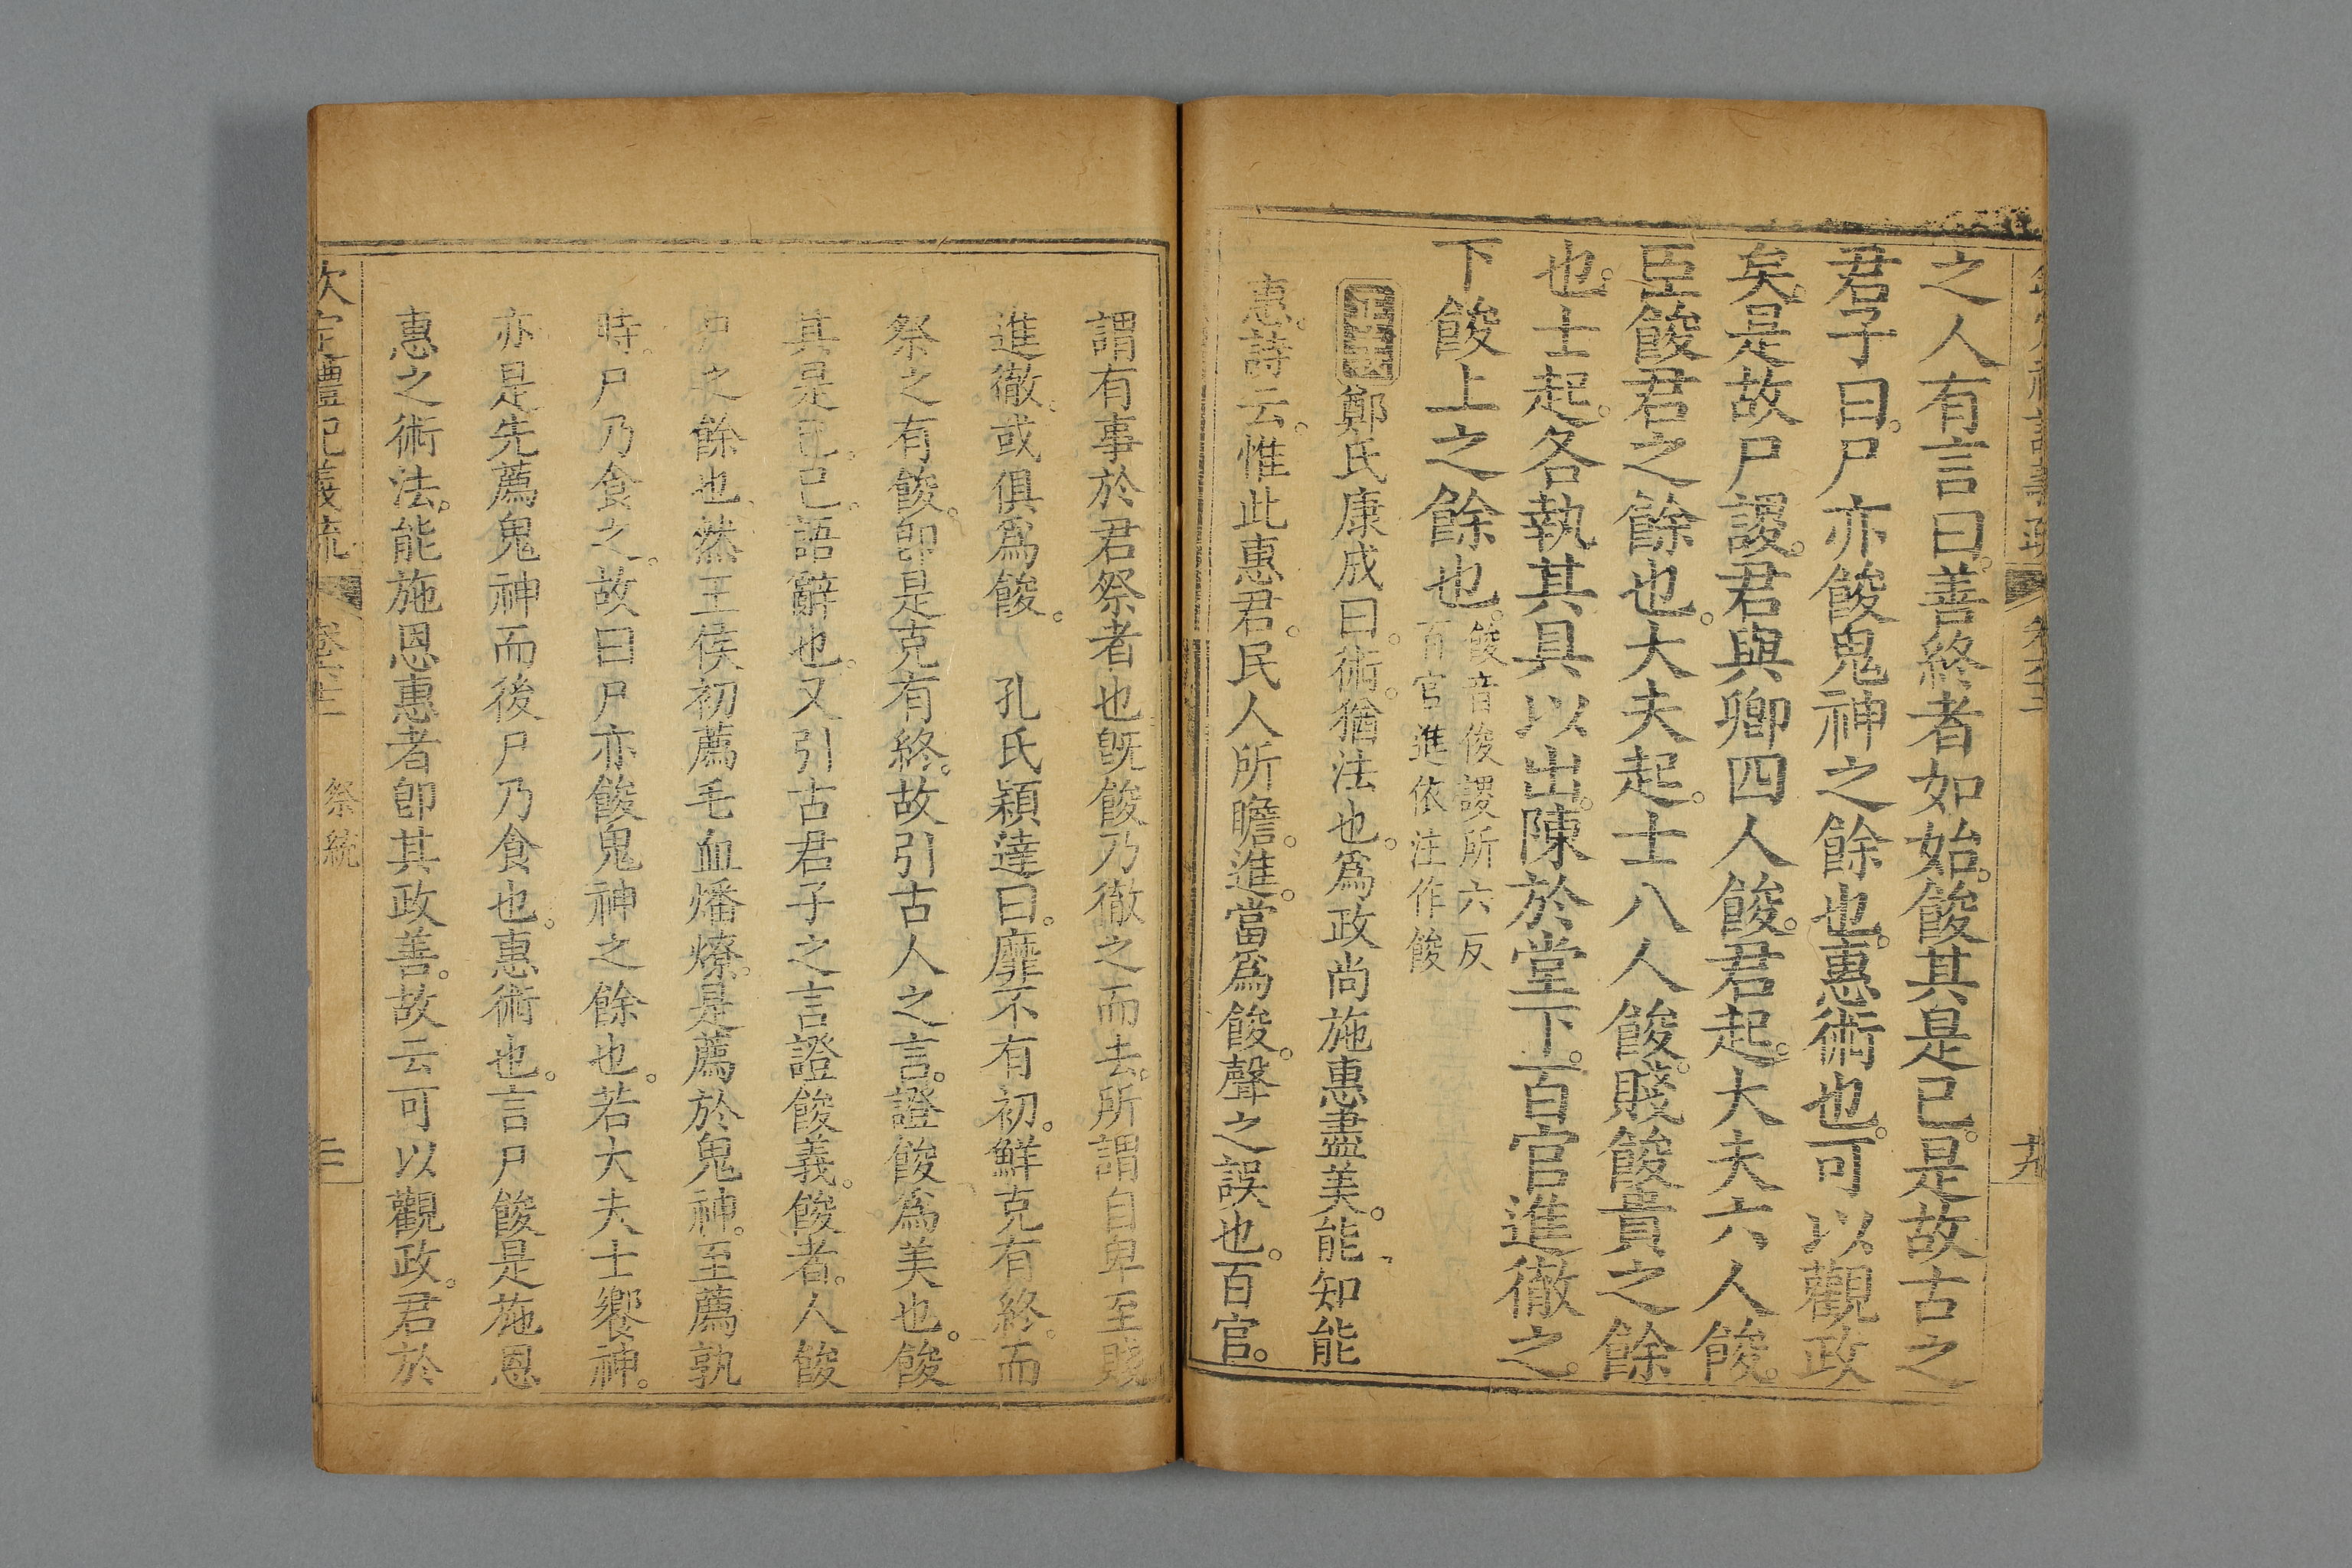 之人有言曰。善終者如始。餕其是已。是故古之
君子曰。尸亦餕鬼神之餘也。惠術也。可以觀政
矣。是故尸謖。君與卿四人餕。君起。大夫六人餕。
臣餕君之餘也。大夫起。士八人餕。賤餕貴之餘
也。士起。各執其具以出。陳於堂下。百官進徹之。
下餕上之餘也。
餕音俊謖所六反
百官進依注作餕
正義鄭氏康成曰。術。猶法也。爲政尚施惠盡美。能知能
惠。詩云。惟此惠君。民人所瞻。進。當爲餕。聲之誤也。百官。
謂有事於君祭者也旣餕乃徹之而去。所謂自卑至賤
進徹。或俱爲餕。 孔氏穎達曰。靡不有初。鮮克有終。而
祭之有餕。卽是克有終。故引古人之言。證餕爲美也。餕
其是已。已。語辭也。又引古君子之言證餕義。餕者。人餕
尸之餘也。然王侯初薦毛血燔燎。是薦於鬼神。至薦孰
時。尸乃食之。故曰尸亦餕鬼神之餘也。若大夫士饗神。
亦是先薦鬼神而後尸乃食也。惠術也。言尸餕是施恩
惠之術法。能施恩惠者卽其政善。故云可以觀政。君於
欽定禮記義疏 卷六十二 祭統 二十